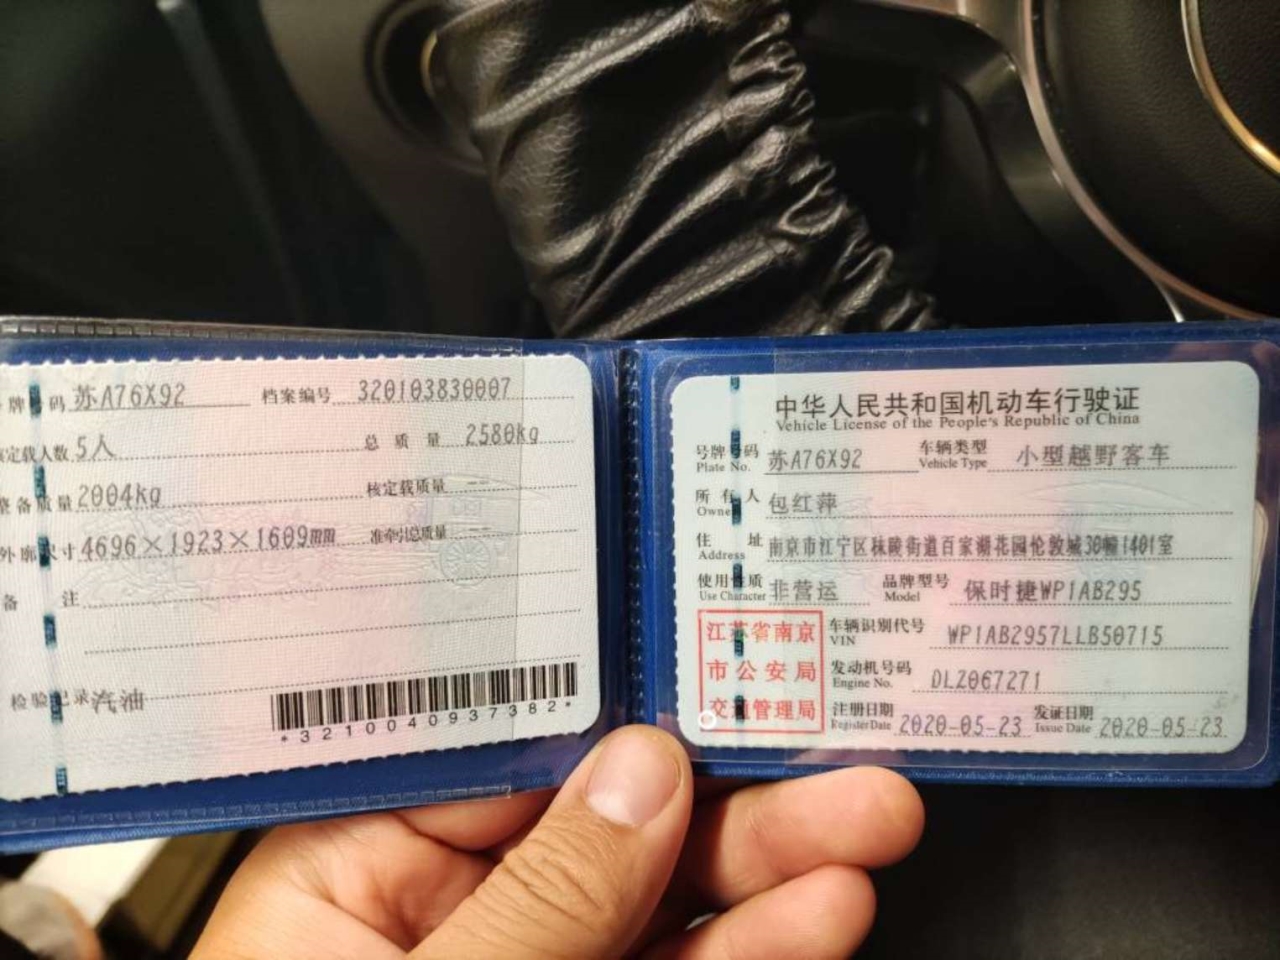 号牌号码 苏A76X92 档案编号 320103830007
核定载人数 5人 总质量 2580kg
整备质量 2004kg 核定载质量 --
外廓尺寸 4696×1923×1609mm 准牵引总质量 --
备注
检验记录 汽油
*3210040937382*
中华人民共和国机动车行驶证
Vehicle License of the People's Republic of China
号牌号码 苏A76X92 车辆类型 小型越野客车
Plate No. Vehicle Type
所有人 包红萍
Owner
住址 南京市江宁区秣陵街道百家湖花园伦敦城30幢1401室
Address
使用性质 非营运 品牌型号 保时捷WP1AB295
Use Character Model
江苏省南京市公安局交通管理局
车辆识别代号 WP1AB2957LLB50715
VIN
发动机号码 DLZ067271
Engine No.
注册日期 2020-05-23 发证日期 2020-05-23
Register Date Issue Date